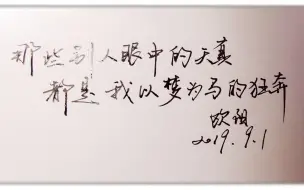 那些别人眼中的天真
都是我以梦为马的狂奔
欧阳
2019.9.1